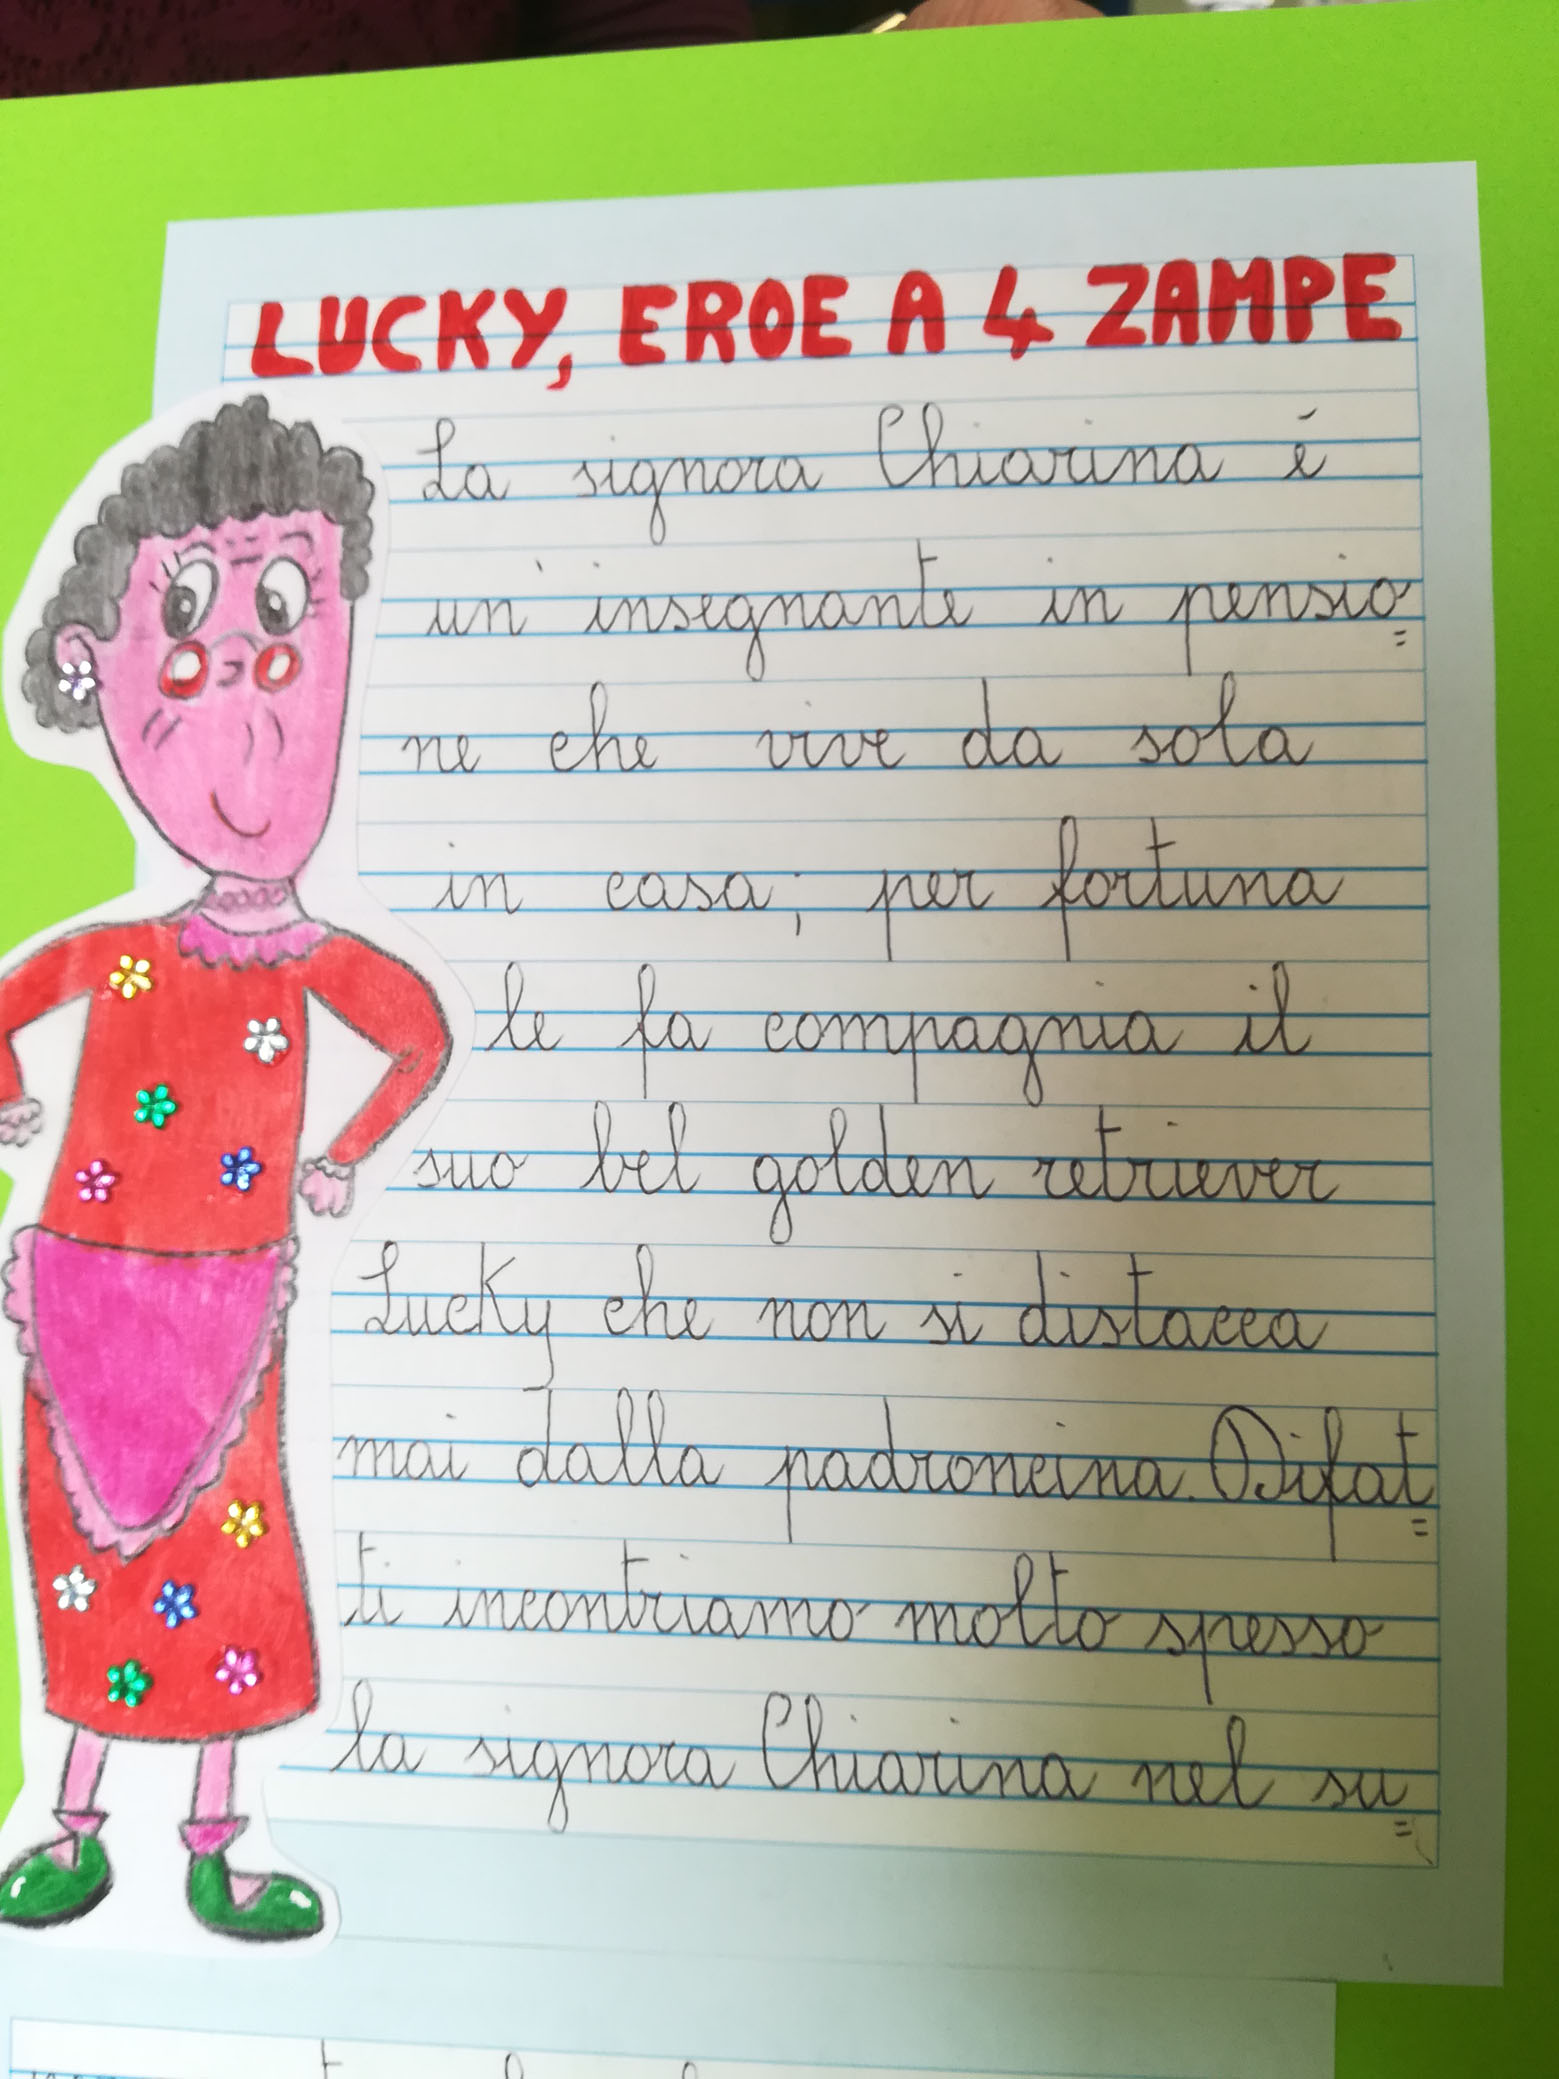 LUCKY, EROE A 4 ZAMPE
La signora Chiarina é
un' insegnante in pensio=
ne che vive da sola
in casa; per fortuna
le fa compagnia il
suo bel golden retriever
Lucky che non si distacca
mai dalla padroncina. Difat=
ti incontriamo molto spesso
la signora Chiarina nel su=